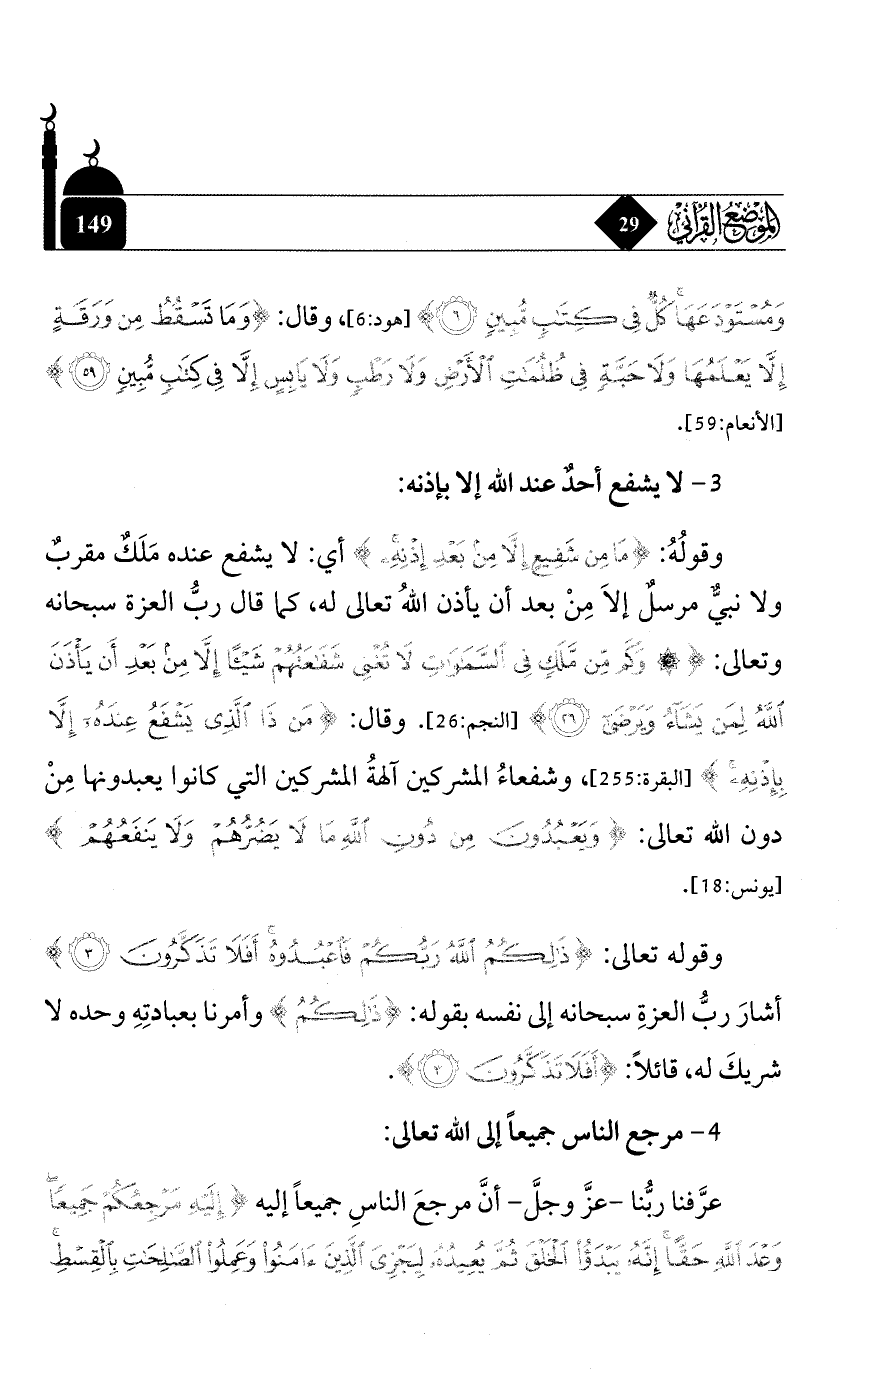 149
29
الموضع القرآني
وَمُسْتَوْدَعَهَا ۚ كُلٌّ فِي كِتَابٍ مُّبِينٍ ﴿٦﴾ [هود:6]، وقال: ﴿وَمَا تَسْقُطُ مِن وَرَقَةٍ
إِلَّا يَعْلَمُهَا وَلَا حَبَّةٍ فِي ظُلُمَاتِ الْأَرْضِ وَلَا رَطْبٍ وَلَا يَابِسٍ إِلَّا فِي كِتَابٍ مُّبِينٍ ٥٩﴾
[الأنعام:59].
3- لا يشفع أحدٌ عند الله إلا بإذنه:
وقولُهُ: ﴿مَا مِن شَفِيعٍ إِلَّا مِنْ بَعْدِ إِذْنِهِ ۚ﴾ أي: لا يشفع عنده مَلَكٌ مقربٌ
ولا نبيٌّ مرسلٌ إلاَ مِنْ بعد أن يأذن اللهُ تعالى له، كما قال ربُّ العزة سبحانه
وتعالى: ﴿۞ وَكَم مِّن مَّلَكٍ فِي السَّمَاوَاتِ لَا تُغْنِي شَفَاعَتُهُمْ شَيْئًا إِلَّا مِنْ بَعْدِ أَن يَأْذَنَ
اللَّهُ لِمَن يَشَاءُ وَيَرْضَىٰ ٢٦﴾ [النجم:26]. وقال: ﴿مَن ذَا الَّذِي يَشْفَعُ عِندَهُ إِلَّا
بِإِذْنِهِ ۚ﴾ [البقرة:255]، وشفعاءُ المشركين آلهةُ المشركين التي كانوا يعبدونها مِنْ
دون الله تعالى: ﴿وَيَعْبُدُونَ مِن دُونِ اللَّهِ مَا لَا يَضُرُّهُمْ وَلَا يَنفَعُهُمْ﴾
[يونس:18].
وقوله تعالى: ﴿ذَٰلِكُمُ اللَّهُ رَبُّكُمْ فَاعْبُدُوهُ ۚ أَفَلَا تَذَكَّرُونَ ٣﴾
أشارَ ربُّ العزةِ سبحانه إلى نفسه بقوله: ﴿ذَٰلِكُمُ﴾ وأمرنا بعبادتِهِ وحده لا
شريكَ له، قائلاً: ﴿أَفَلَا تَذَكَّرُونَ ٣﴾.
4- مرجع الناس جميعاً إلى الله تعالى:
عرَّفنا ربُّنا -عزَّ وجلَّ- أنَّ مرجعَ الناسِ جميعاً إليه ﴿إِلَيْهِ مَرْجِعُكُمْ جَمِيعًا ۖ
وَعْدَ اللَّهِ حَقًّا ۚ إِنَّهُ يَبْدَؤُا الْخَلْقَ ثُمَّ يُعِيدُهُ لِيَجْزِيَ الَّذِينَ ءَامَنُوا وَعَمِلُوا الصَّالِحَاتِ بِالْقِسْطِ ۚ